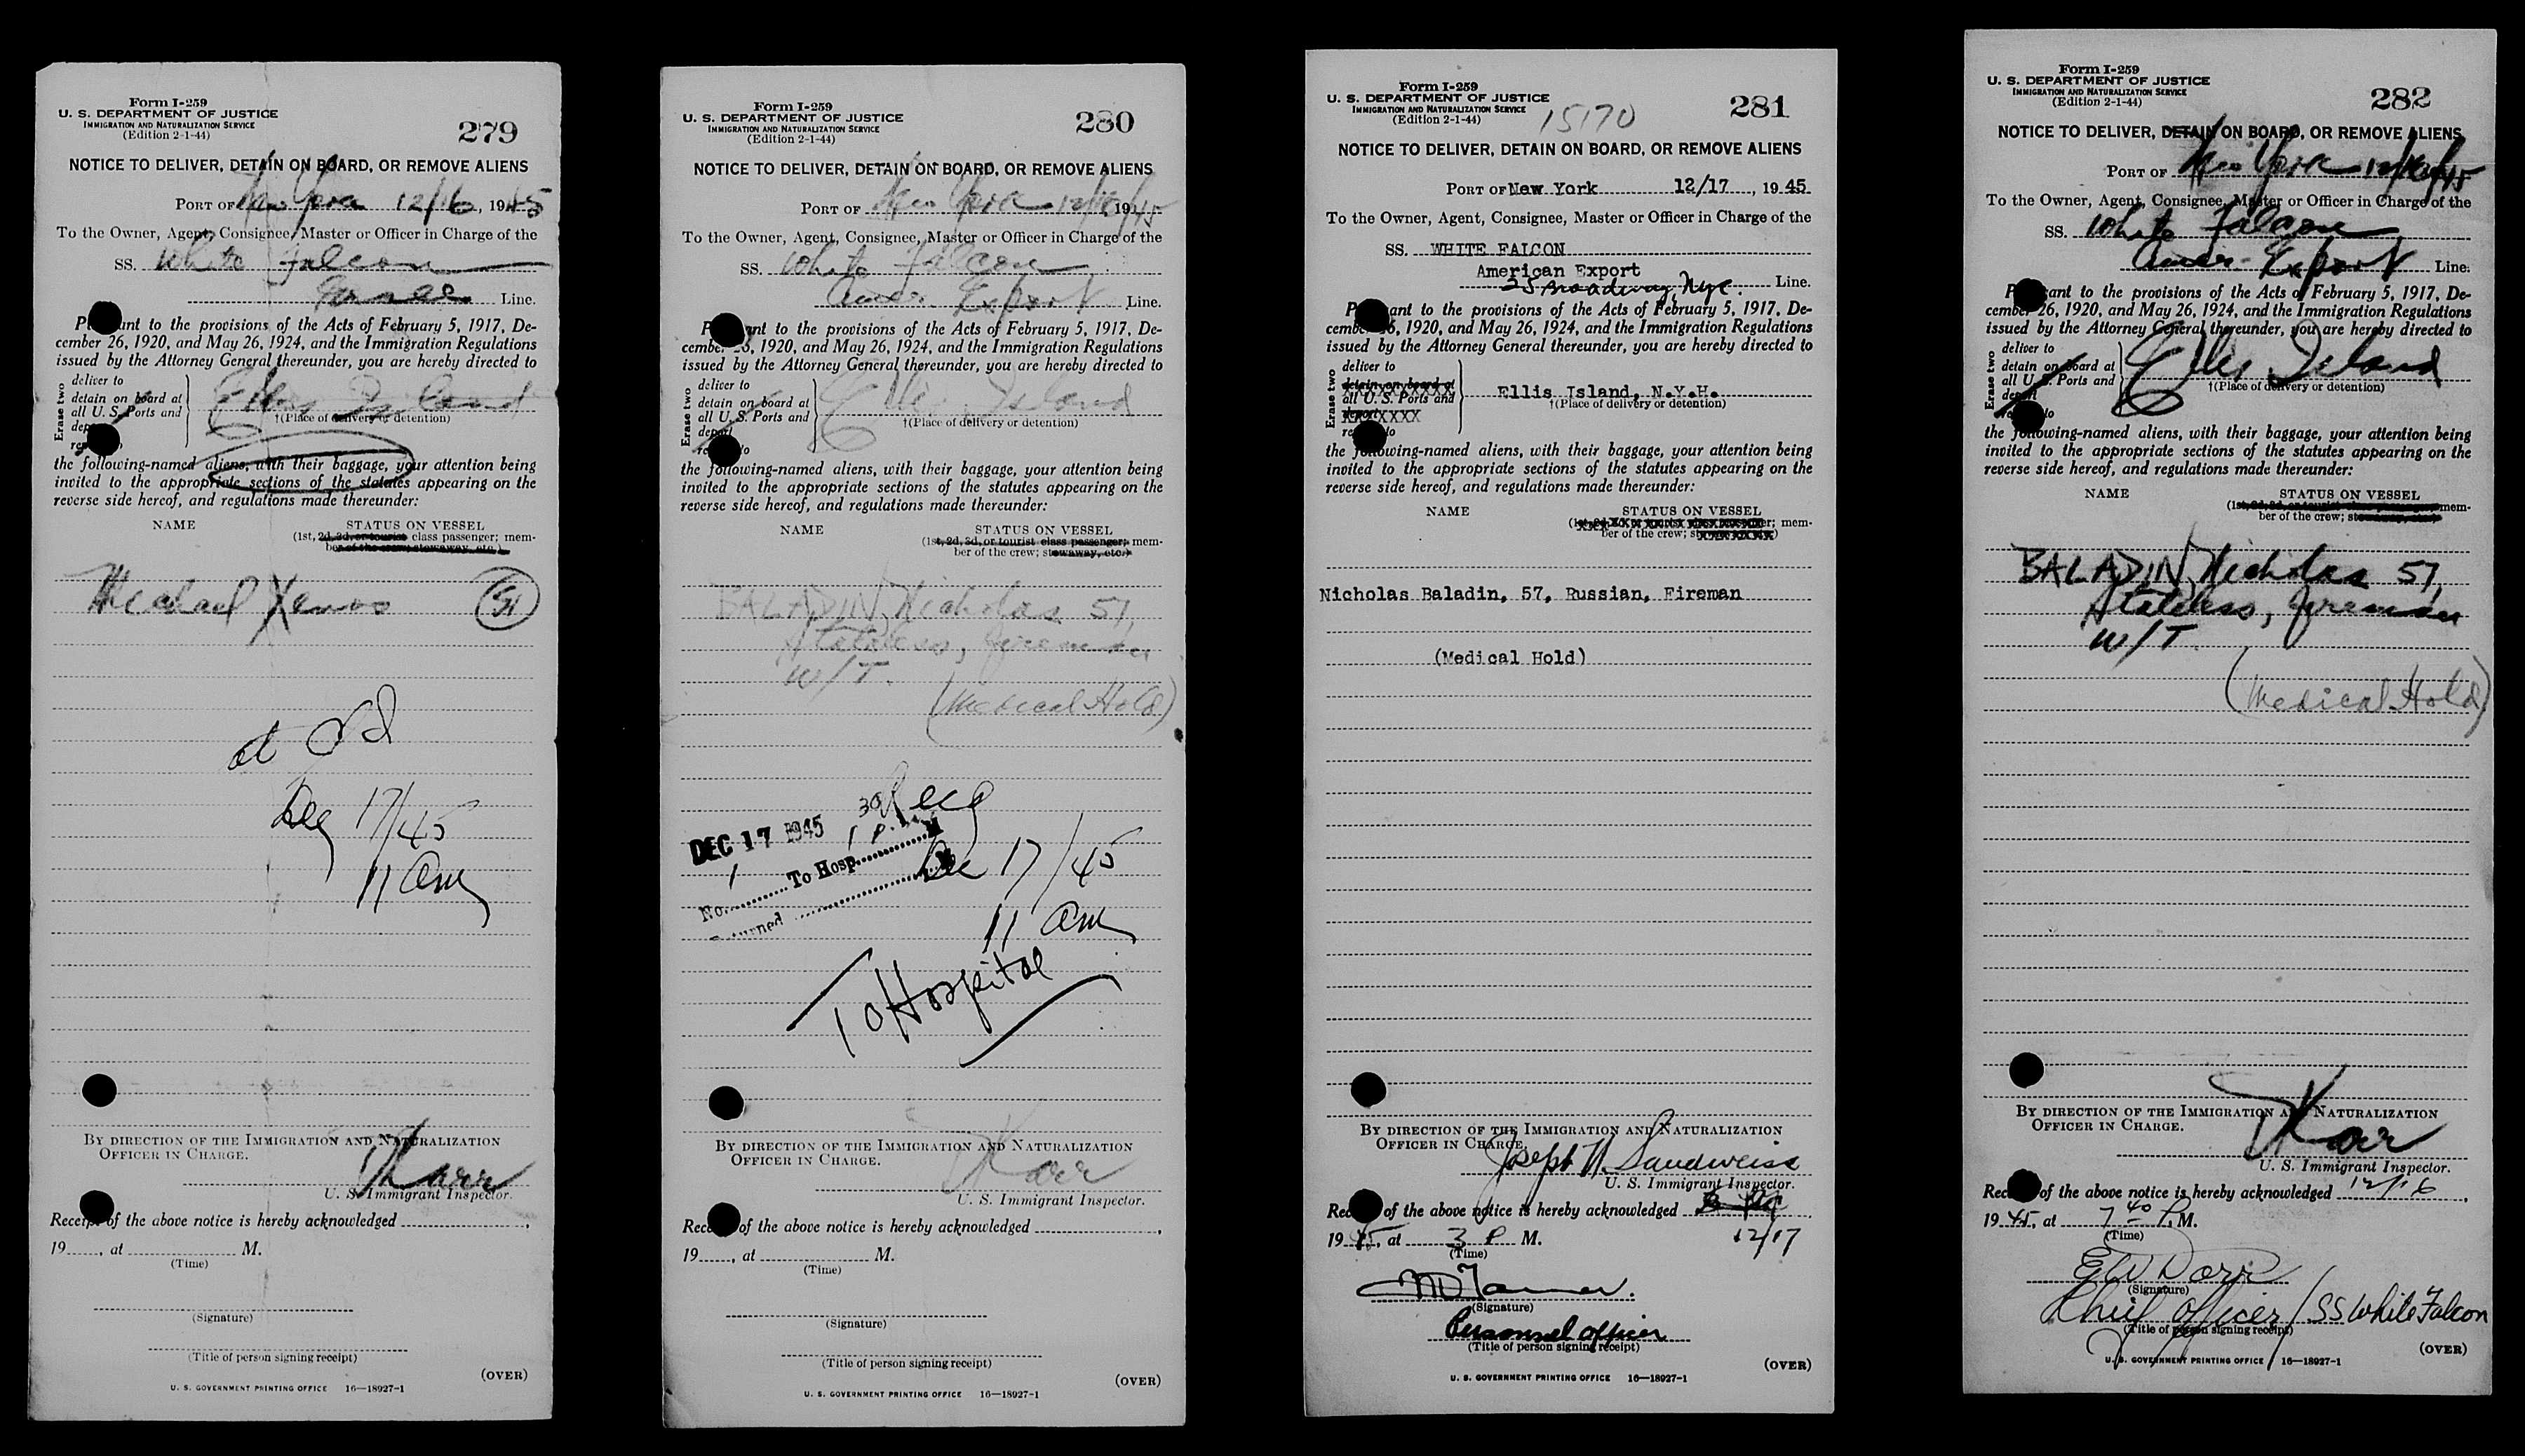 Form I-259
U. S. DEPARTMENT OF JUSTICE
IMMIGRATION AND NATURALIZATION SERVICE
(Edition 2-1-44)
279
NOTICE TO DELIVER, DETAIN ON BOARD, OR REMOVE ALIENS
PORT OF New York 12/16, 1945
To the Owner, Agent, Consignee, Master or Officer in Charge of the
SS. White Falcon
Line.
Pursuant to the provisions of the Acts of February 5, 1917, De-
cember 26, 1920, and May 26, 1924, and the Immigration Regulations
issued by the Attorney General thereunder, you are hereby directed to
Erase two
deliver to
detain on board at
all U. S. Ports and
deport
Ellis Island
†(Place of delivery or detention)
the following-named aliens, with their baggage, your attention being
invited to the appropriate sections of the statutes appearing on the
reverse side hereof, and regulations made thereunder:
NAME STATUS ON VESSEL
(1st, 2d, 3d, or tourist class passenger; mem-
ber of the crew; stowaway, etc.)
Michael Xenos
at
Dec 17/45
11 am
BY DIRECTION OF THE IMMIGRATION AND NATURALIZATION
OFFICER IN CHARGE.
Karr
U. S. Immigrant Inspector.
Receipt of the above notice is hereby acknowledged ,
19 , at M.
(Time)
(Signature)
(Title of person signing receipt)
(OVER)
U. S. GOVERNMENT PRINTING OFFICE 16—18927-1
Form I-259
U. S. DEPARTMENT OF JUSTICE
IMMIGRATION AND NATURALIZATION SERVICE
(Edition 2-1-44)
280
NOTICE TO DELIVER, DETAIN ON BOARD, OR REMOVE ALIENS
PORT OF New York 12/16 1945
To the Owner, Agent, Consignee, Master or Officer in Charge of the
SS. White Falcon
Amer. Export Line.
Pursuant to the provisions of the Acts of February 5, 1917, De-
cember 26, 1920, and May 26, 1924, and the Immigration Regulations
issued by the Attorney General thereunder, you are hereby directed to
Erase two
deliver to
detain on board at
all U. S. Ports and
deport
Ellis Island
†(Place of delivery or detention)
the following-named aliens, with their baggage, your attention being
invited to the appropriate sections of the statutes appearing on the
reverse side hereof, and regulations made thereunder:
NAME STATUS ON VESSEL
(1st, 2d, 3d, or tourist class passenger; mem-
ber of the crew; stowaway, etc.)
BALADIN, Nicholas 57,
Stateless, fireman
W/T.
(Medical Hold)
Recd
DEC 17 1945 1 P. M
No. 1 To Hosp.
Returned
Dec 17/45
11 am
To Hospital
BY DIRECTION OF THE IMMIGRATION AND NATURALIZATION
OFFICER IN CHARGE.
Karr
U. S. Immigrant Inspector.
Receipt of the above notice is hereby acknowledged ,
19 , at M.
(Time)
(Signature)
(Title of person signing receipt)
(OVER)
U. S. GOVERNMENT PRINTING OFFICE 16—18927-1
Form I-259
U. S. DEPARTMENT OF JUSTICE
IMMIGRATION AND NATURALIZATION SERVICE
(Edition 2-1-44)
15170
281
NOTICE TO DELIVER, DETAIN ON BOARD, OR REMOVE ALIENS
PORT OF New York 12/17 , 1945
To the Owner, Agent, Consignee, Master or Officer in Charge of the
SS. WHITE FALCON
American Export
25 Broadway, Nyc. Line.
Pursuant to the provisions of the Acts of February 5, 1917, De-
cember 26, 1920, and May 26, 1924, and the Immigration Regulations
issued by the Attorney General thereunder, you are hereby directed to
Erase two
deliver to
detain on board at
all U. S. Ports and
deport XXXX
Ellis Island, N.Y.H.
†(Place of delivery or detention)
the following-named aliens, with their baggage, your attention being
invited to the appropriate sections of the statutes appearing on the
reverse side hereof, and regulations made thereunder:
NAME STATUS ON VESSEL
(1st, 2d, 3d, or tourist class passenger; mem-
ber of the crew; stowaway, etc.)
Nicholas Baladin, 57, Russian, Fireman
(Medical Hold)
BY DIRECTION OF THE IMMIGRATION AND NATURALIZATION
OFFICER IN CHARGE.
Joseph W. Sandweiss
U. S. Immigrant Inspector.
Receipt of the above notice is hereby acknowledged
1945, at 3 P M. 12/17
(Time)
(Signature)
Personnel officer
(Title of person signing receipt)
(OVER)
U. S. GOVERNMENT PRINTING OFFICE 16—18927-1
Form I-259
U. S. DEPARTMENT OF JUSTICE
IMMIGRATION AND NATURALIZATION SERVICE
(Edition 2-1-44)
282
NOTICE TO DELIVER, DETAIN ON BOARD, OR REMOVE ALIENS
PORT OF New York 12/16/45
To the Owner, Agent, Consignee, Master or Officer in Charge of the
SS. White Falcon
Amer. Export Line.
Pursuant to the provisions of the Acts of February 5, 1917, De-
cember 26, 1920, and May 26, 1924, and the Immigration Regulations
issued by the Attorney General thereunder, you are hereby directed to
Erase two
deliver to
detain on board at
all U. S. Ports and
deport
Ellis Island
†(Place of delivery or detention)
the following-named aliens, with their baggage, your attention being
invited to the appropriate sections of the statutes appearing on the
reverse side hereof, and regulations made thereunder:
NAME STATUS ON VESSEL
(1st, 2d, 3d, or tourist class passenger; mem-
ber of the crew; stowaway, etc.)
BALADIN, Nicholas 57,
Stateless, fireman
W/T.
(Medical Hold)
BY DIRECTION OF THE IMMIGRATION AND NATURALIZATION
OFFICER IN CHARGE.
Karr
U. S. Immigrant Inspector.
Receipt of the above notice is hereby acknowledged 12/16 ,
1945, at 7 40 P. M.
(Time)
E W Dorr
(Signature)
Chief officer / SS White Falcon
(Title of person signing receipt)
(OVER)
U. S. GOVERNMENT PRINTING OFFICE 16—18927-1